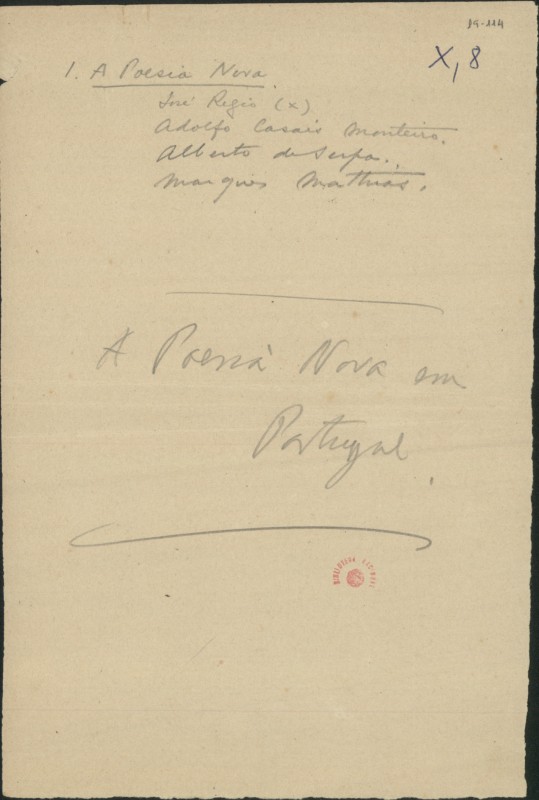 19-114
X, 8
1. A Poesia Nova
José Regio (x)
Adolfo Casais Monteiro.
Alberto de Serpa.
Marques Mathias.
A Poesia Nova em
Portugal.
BIBLIOTECA NACIONAL